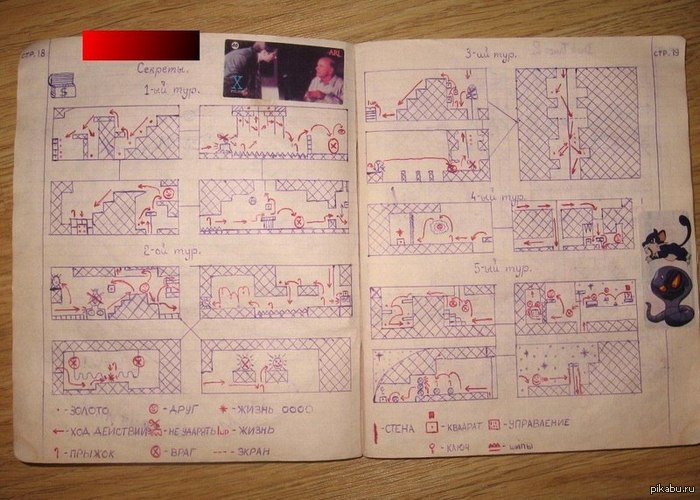 СТР. 18
Секреты.
1-ый тур.
2-ой тур.
• - ЗОЛОТО
← - ХОД ДЕЙСТВИЙ
- ПРЫЖОК
- ДРУГ
- НЕ УДАРЯТЬ
- ВРАГ
- ЖИЗНЬ
- ЖИЗНЬ
--- - ЭКРАН
X
3-ий тур.
СТР. 19
4-ый тур.
5-ый тур.
- СТЕНА
- КВАДРАТ
- УПРАВЛЕНИЕ
- КЛЮЧ
- ШИПЫ
pikabu.ru